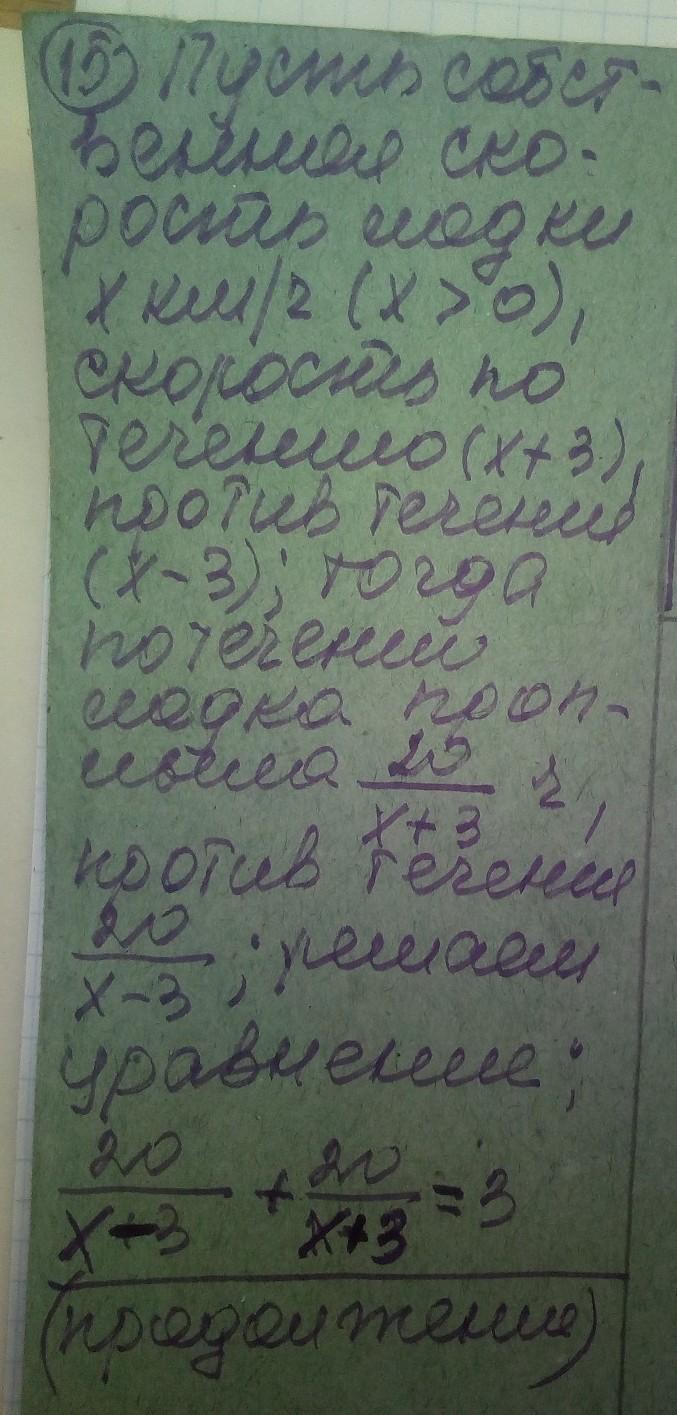 15 Пусть собст-
венная ско-
рость лодки
x км/ч (x > 0),
скорость по
течению (x+3),
против течения
(x-3); тогда
по течению
лодка проп-
лыла 20/(x+3) ч,
против течения
20/(x-3); решаем
уравнение:
20/(x-3) + 20/(x+3) = 3
(продолжение)